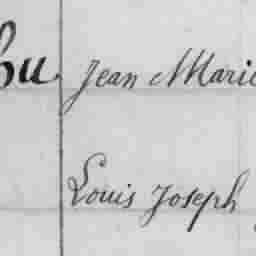 hu Jean Marie
Louis Joseph